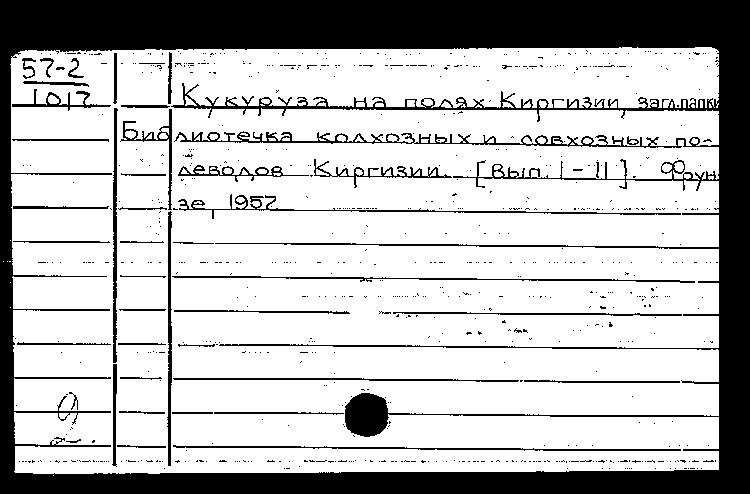 57-2
1017
Кукуруза на полях Киргизии, загл. папки
Библиотечка колхозных и совхозных по-
леводов Киргизии. [Вып. I - II]. Фрун-
зе, 1957